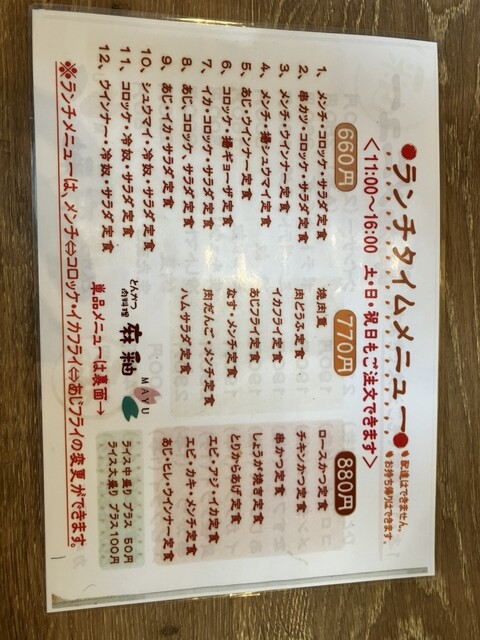 ●ランチタイムメニュー●
配達はできません。
お持ち帰りはできます。
＜11:00～16:00 土・日・祝日もご注文できます＞
660円
1、メンチ・コロッケ・サラダ定食
2、串カツ・コロッケ・サラダ定食
3、メンチ・ウインナー定食
4、メンチ・揚シュウマイ定食
5、あじ・ウインナー定食
6、コロッケ・揚ギョーザ定食
7、イカ・コロッケ・サラダ定食
8、あじ、コロッケ、サラダ定食
9、あじ・イカ・サラダ定食
10、シュウマイ・冷奴・サラダ定食
11、コロッケ・冷奴・サラダ定食
12、ウインナー・冷奴・サラダ定食
770円
焼肉重
肉どうふ定食
イカフライ定食
あじフライ定食
なす・メンチ定食
肉だんご・メンチ定食
ハムサラダ定食
880円
ロースかつ定食
チキンかつ定食
串かつ定食
しょうが焼き定食
とりからあげ定食
エビ・アジ・イカ定食
エビ・カキ・メンチ定食
あじ・ヒレ・ウインナー定食
とんかつ
肉料理
麻釉
MAYU
ライス中盛り プラス 50円
ライス大盛り プラス100円
単品メニューは裏面→
※ランチメニューは、メンチ⇔コロッケ・イカフライ⇔あじフライの変更ができます。